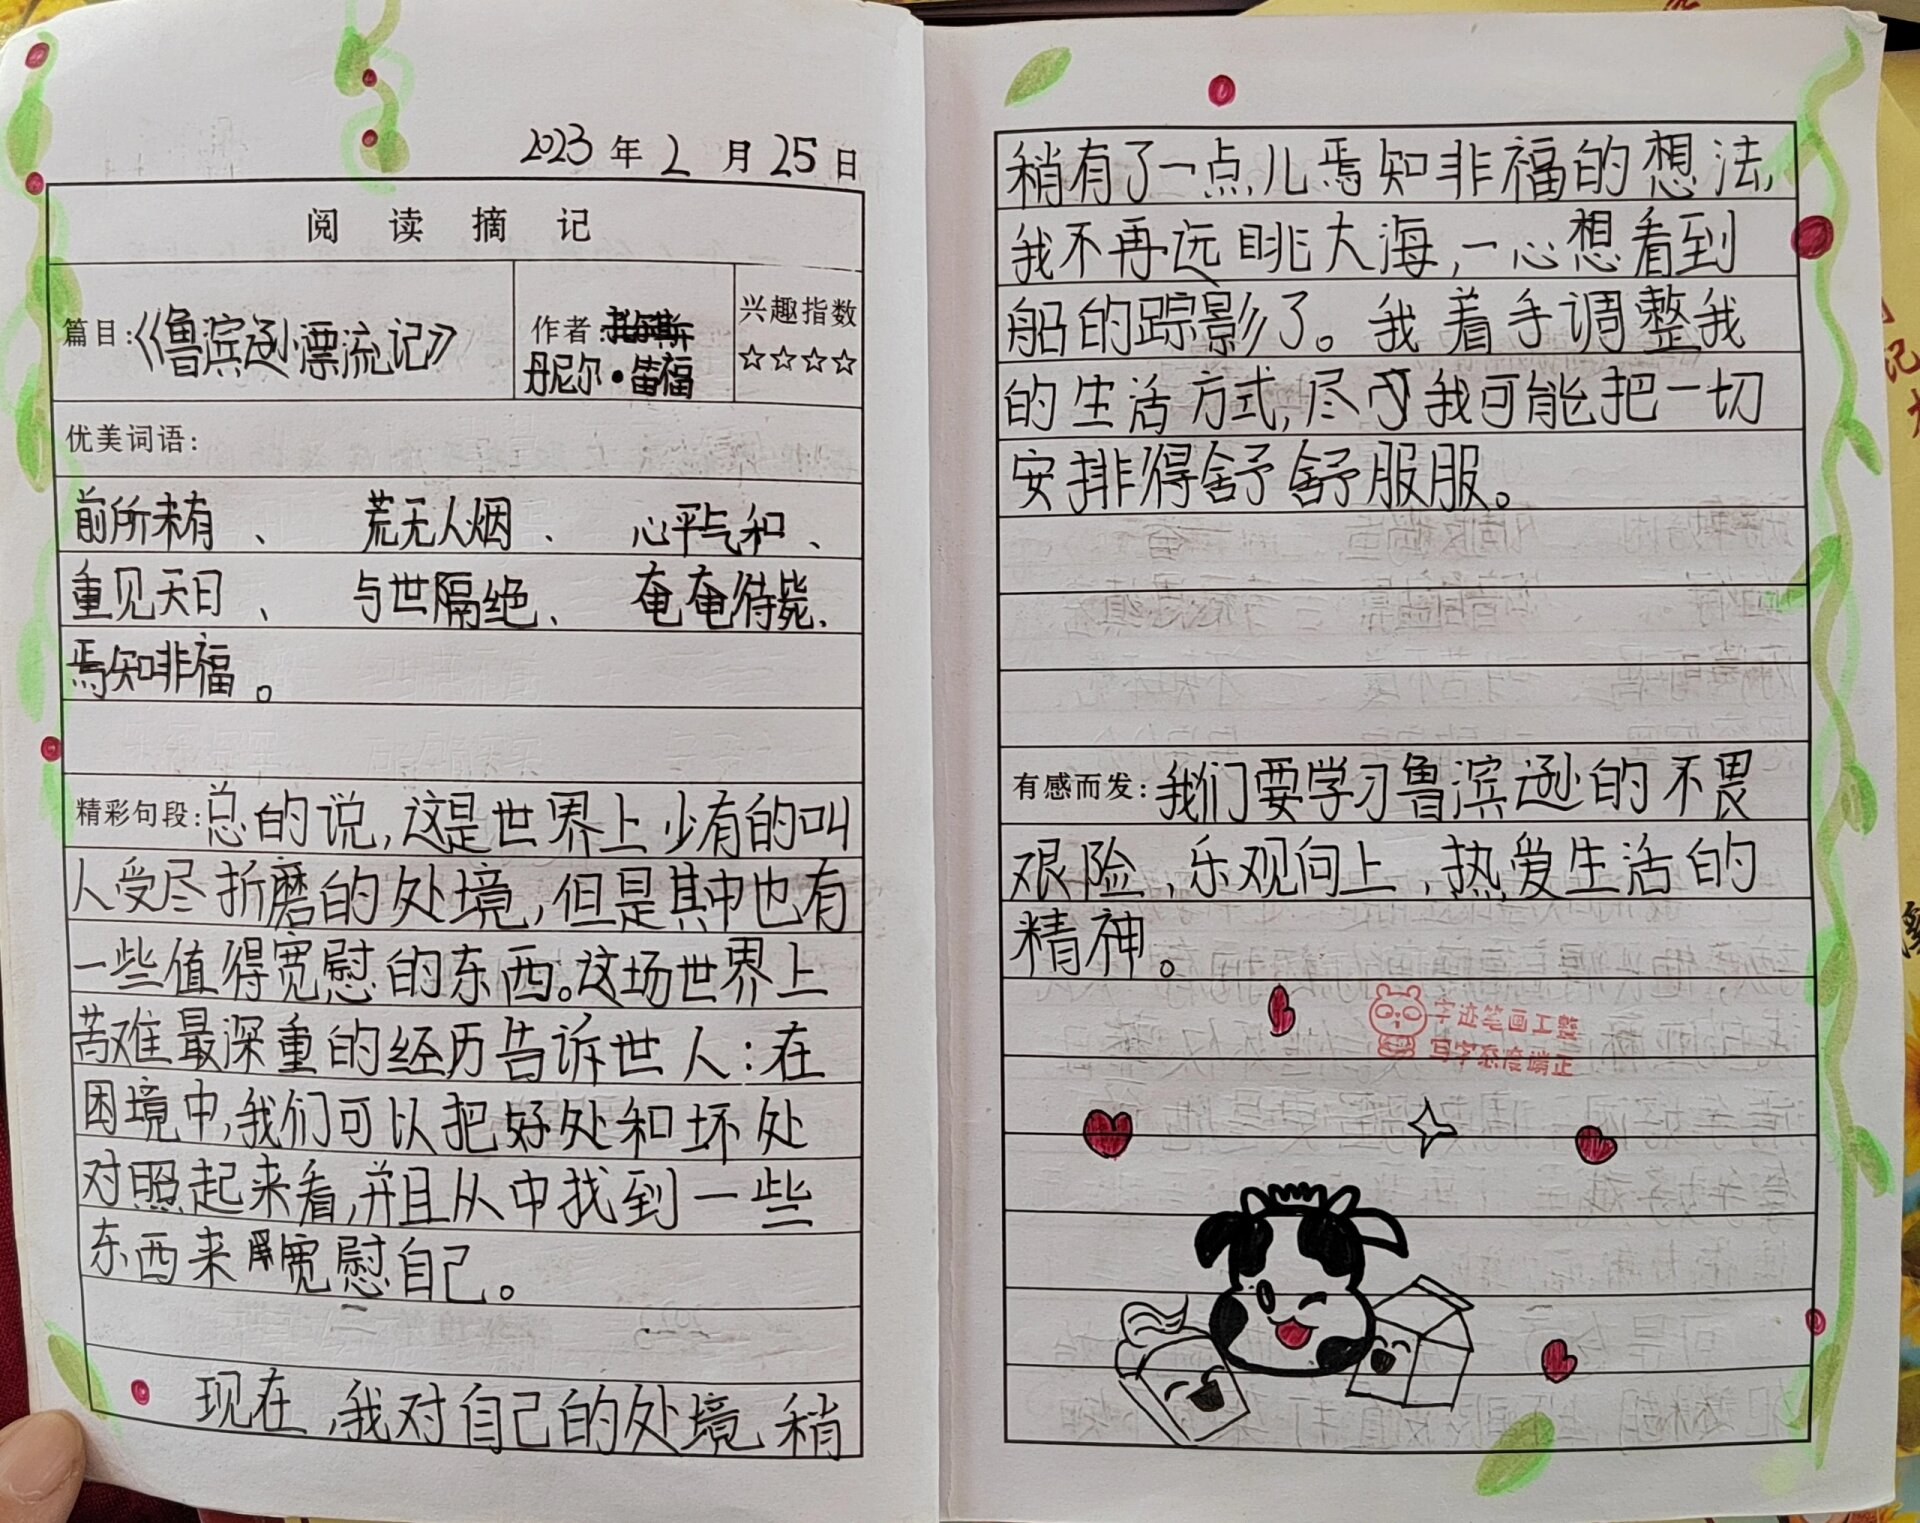 2023年2月25日
阅读摘记
篇目:《鲁滨逊漂流记》
作者:
丹尼尔·笛福
兴趣指数
☆☆☆☆
优美词语:
前所未有、荒无人烟、心平气和、
重见天日、与世隔绝、奄奄待毙、
焉知非福。
精彩句段:总的说,这是世界上少有的叫
人受尽折磨的处境,但是其中也有
一些值得宽慰的东西。这场世界上
苦难最深重的经历告诉世人:在
困境中,我们可以把好处和坏处
对照起来看,并且从中找到一些
东西来宽慰自己。
现在,我对自己的处境稍
稍有了一点儿焉知非福的想法,
我不再远眺大海,一心想看到
船的踪影了。我着手调整我
的生活方式,尽我可能把一切
安排得舒舒服服。
有感而发:我们要学习鲁滨逊的不畏
艰险,乐观向上,热爱生活的
精神。
字迹笔画工整
写字态度端正